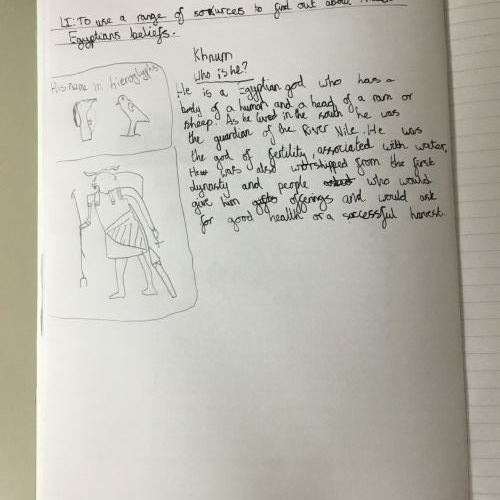 LI: To use a range of sources to find out about
Egyptians beliefs.
Khnum
Who is he?
His name in hieroglyphs
He is a Egyptian god who has a
body of a human and a head of a ram or
sheep. As he lived in the south he was
the guardian of the River Nile. He was
the god of fertility, associated with water,
He was also worshipped from the first
dynasty and people who would
give him offerings and would ask
for good health or a successful harvest.